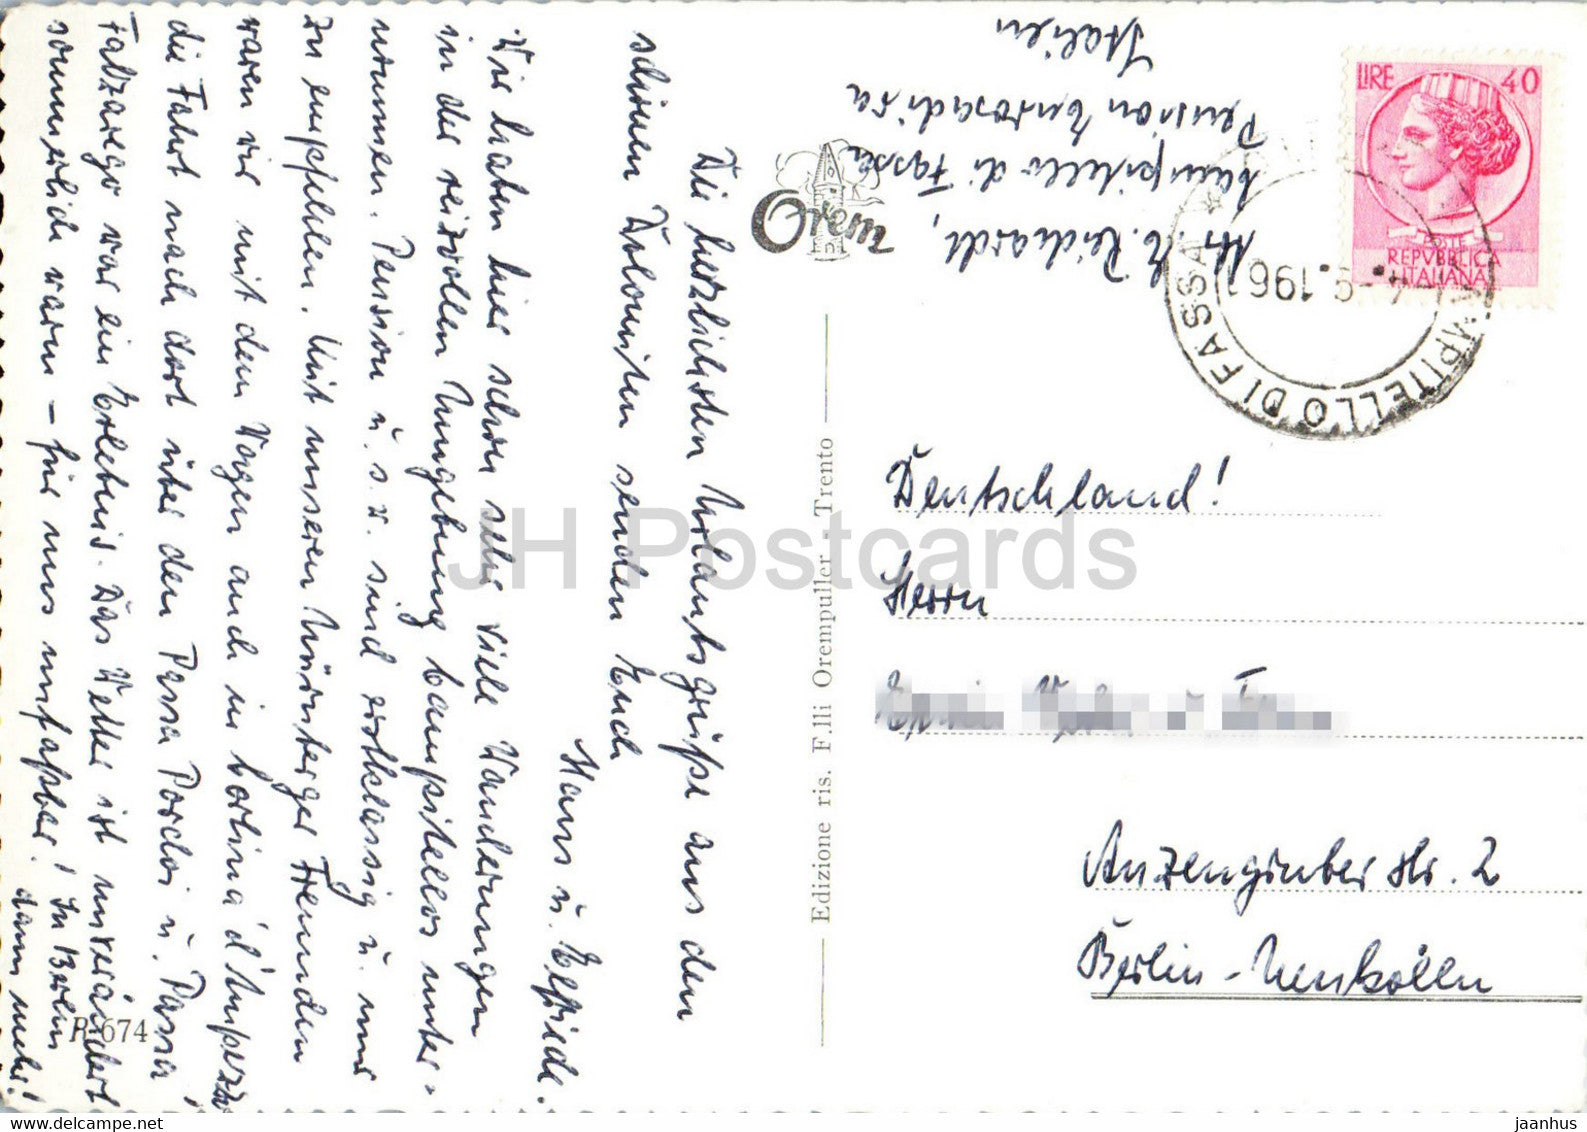 Die herzlichsten Urlaubsgrüße aus den
schönen Dolomiten senden Euch
Hans u. Elfriede.
Wir haben hier schon sehr viele Wanderungen
in der reizvollen Umgebung Campitellos unter-
nommen. Pension u.s.w. sind erstklassig u. nur
zu empfehlen. Mit unseren Nürnberger Freunden
waren wir mit dem Wagen auch in Cortina d'Ampezzo
die Fahrt nach dort über den Passa Pordoi u. Passa
Falzarego war ein Erlebnis. Das Wetter ist unverändert
sommerlich warm – für uns unfaßbar! In Berlin
dann mehr!
R-674
Abs. E. Reichardt,
Campitello di Fassa
Pension Enrosadira
Italien
Orem
Edizione ris. F.lli Orempuller - Trento
LIRE 40
POSTE
REPVBBLICA
ITALIANA
CAMPITELLO DI FASSA
Deutschland!
Herrn
Anzengruber Str. 2
Berlin-Neukölln
JH Postcards
Delcampe.net
jaanhus